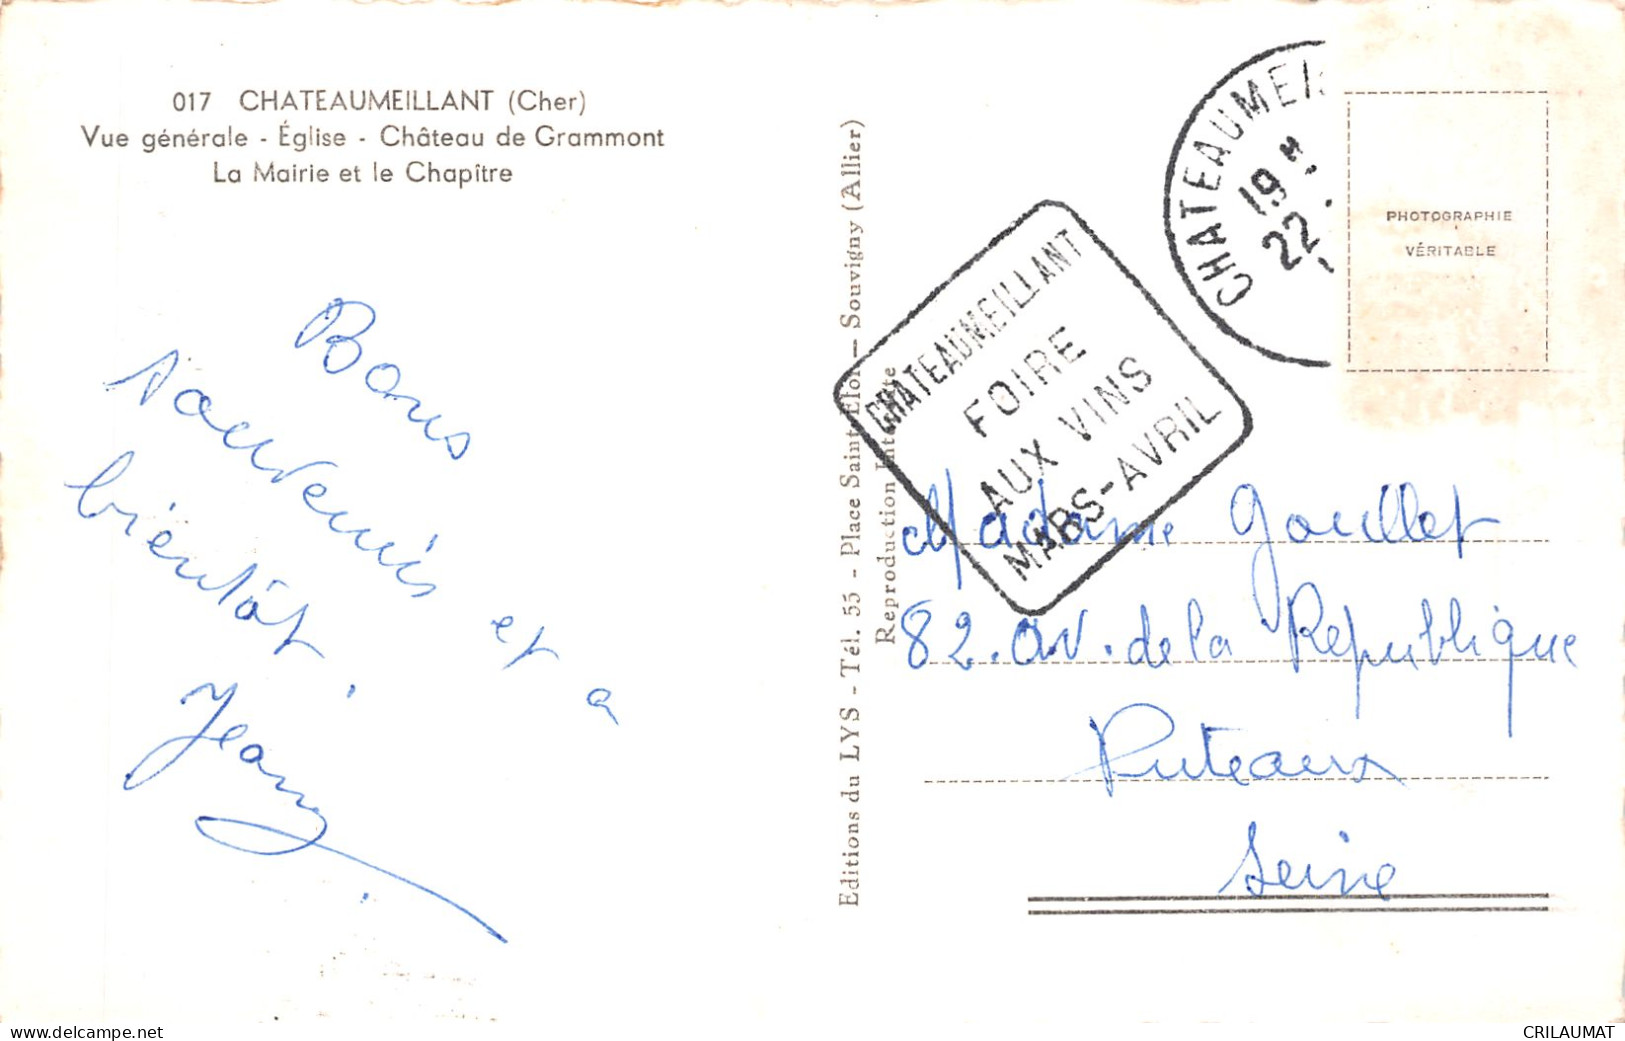 017 CHATEAUMEILLANT (Cher)
Vue générale - Église - Château de Grammont
La Mairie et le Chapître
Bons
souvenirs et a
bientôt.
Editions du LYS - Tél. 55 - Place Saint Eloi — Souvigny (Allier)
Reproduction Interdite
CHATEAUMEILLANT
FOIRE
AUX VINS
MARS-AVRIL
CHATEAUMEI
19
22
PHOTOGRAPHIE
VÉRITABLE
Madame Goullet
82. av. de la République
Puteaux
Seine
www.delcampe.net
CRILAUMAT